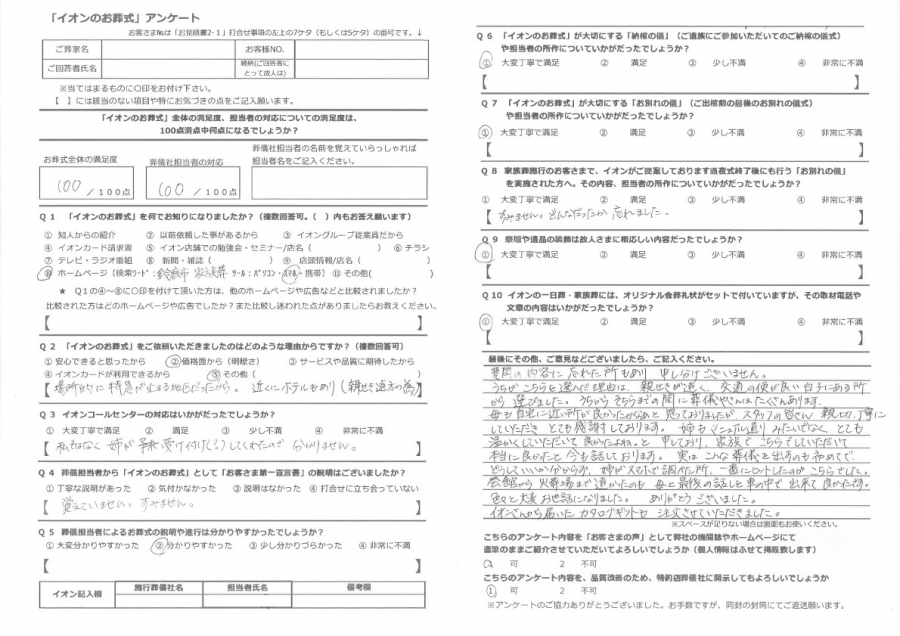 「イオンのお葬式」アンケート
お客さま№は「お見積書2-1」打合せ事項の左上の7ケタ（もしくは5ケタ）の番号です。↓
ご葬家名 お客様NO.
ご回答者氏名 続柄(ご回答者にとって故人は)
※当てはまるものに〇印をお付け下さい。
【 】には該当のない項目や特にお気づきの点をご記入願います。
「イオンのお葬式」全体の満足度、担当者の対応についての満足度は、
100点満点中何点になるでしょうか？
お葬式全体の満足度 葬儀社担当者の対応 葬儀社担当者の名前を覚えていらっしゃれば
担当者名をご記入ください。
100 / 100点 100 / 100点
Q１ 「イオンのお葬式」を何でお知りになりましたか？（複数回答可。( ）内もお答え願います）
① 知人からの紹介 ② 以前依頼した事があるから ③ イオングループ従業員だから
④ イオンカード請求書 ⑤ イオン店舗での勉強会・セミナー/店名（ ） ⑥ チラシ
⑦ テレビ・ラジオ番組 ⑧ 新聞・雑誌（ ） ⑨ 店頭情報/店名（ ）
⑩ ホームページ（検索ﾜｰﾄﾞ：鈴鹿市 家族葬 ﾂｰﾙ：ﾊﾟｿｺﾝ・ｽﾏﾎ・携帯）⑪ その他（ ）
★ Q１の④～⑧に〇印を付けて頂いた方は、他のホームページや広告などと比較されましたか？
比較された方はどのホームページや広告でしたか？また比較し迷われた点がありましたらお教えください。
【 】
Q２ 「イオンのお葬式」をご依頼いただきましたのはどのような理由からですか？（複数回答可）
①安心できると思ったから ②価格面から（明瞭さ） ③サービスや品質に期待したから
④イオンカードが利用できるから ⑤その他（
【場所的に 特急が止まる地だったから。 近くにホテルもあり（親せき遠方の為）】
Q３ イオンコールセンターの対応はいかがだったでしょうか？
① 大変丁寧で満足 ② 満足 ③ 少し不満 ④ 非常に不満
【私ではなく 姉が 予約受け付け してくれたので 分かりません。】
Q４ 葬儀担当者から「イオンのお葬式」として「お客さま第一宣言書」の説明はございましたか？
①丁寧な説明があった ②気付かなかった ③説明はなかった ④打合せに立ち会っていない
【覚えていません。すみません。】
Q５ 葬儀担当者によるお葬式の説明や進行は分かりやすかったでしょうか？
①大変分かりやすかった ②分かりやすかった ③ 少し分かりづらかった ④ 非常に不満
【 】
イオン記入欄 施行葬儀社名 担当者氏名 備考欄
Q６ 「イオンのお葬式」が大切にする「納棺の儀」（ご遺族にご参加いただいてのご納棺の儀式）
や担当者の所作についていかがだったでしょうか？
① 大変丁寧で満足 ② 満足 ③ 少し不満 ④ 非常に不満
【 】
Q７ 「イオンのお葬式」が大切にする「お別れの儀」（ご出棺前の最後のお別れの儀式）
や担当者の所作についていかがだったでしょうか？
① 大変丁寧で満足 ② 満足 ③ 少し不満 ④ 非常に不満
【 】
Q８ 家族葬施行のお客さまで、イオンがご提案しております通夜式終了後にも行う「お別れの儀」
を実施された方へ。その内容、担当者の所作についていかがでしょうか？
① 大変丁寧で満足 ② 満足 ③ 少し不満 ④ 非常に不満
【すみません。どんなだったか 忘れました。】
Q９ 祭壇や遺品の装飾は故人さまに相応しい内容だったでしょうか？
① 大変丁寧で満足 ② 満足 ③ 少し不満 ④ 非常に不満
【 】
Q１０ イオンの一日葬・家族葬には、オリジナル会葬礼状がセットで付いていますが、その取材電話や
文章の内容はいかがだったでしょうか？
① 大変丁寧で満足 ② 満足 ③ 少し不満 ④ 非常に不満
【 】
最後にその他、ご意見などございましたら、ご記入ください。
質問の内容に 忘れた所もあり 申し分けございません。
うちがこちらを選んだ理由は、親せきが遠く、交通の便が良い白子にある所
から 選びました。うちからそちらまでの間に葬儀やさんはたくさんあります。
母も自宅に近い所が良かったかなあと 思っておりましたが スタッフの皆さん 親切、丁寧に
していただき とても感謝しております。 姉も マニュアル通り みたいでなく、とても
温かくしていただいて 良かったよねっ。と 申しており、家族で こちらでしていただいて
本当に良かったと 今も話しております。 実は こんな 葬儀を出すのも初めてで、
どうしていいか分からず、姉がスマホで調べた所、一番にヒットしたのが こちらでした。
会館から 火葬場まで遠かったのも 母と最後の話しを車の中で 出来て 良かったです。
色々と大変 お世話になりました。 ありがとう ございました。
イオンさんから届いた カタログギフトも 注文させていただきました。
※スペースが足りない場合は裏面もお使いください。
こちらのアンケート内容を「お客さまの声」として弊社の機関誌やホームページにて
直筆のままご紹介させていただいてよろしいでしょうか（個人情報はふせて掲載致します）
1 可 2 不可
こちらのアンケート内容を、品質改善のため、特約店葬儀社に開示してもよろしいでしょうか
1 可 2 不可
※アンケートのご協力ありがとうございました。お手数ですが、同封の封筒にてご返送願います。